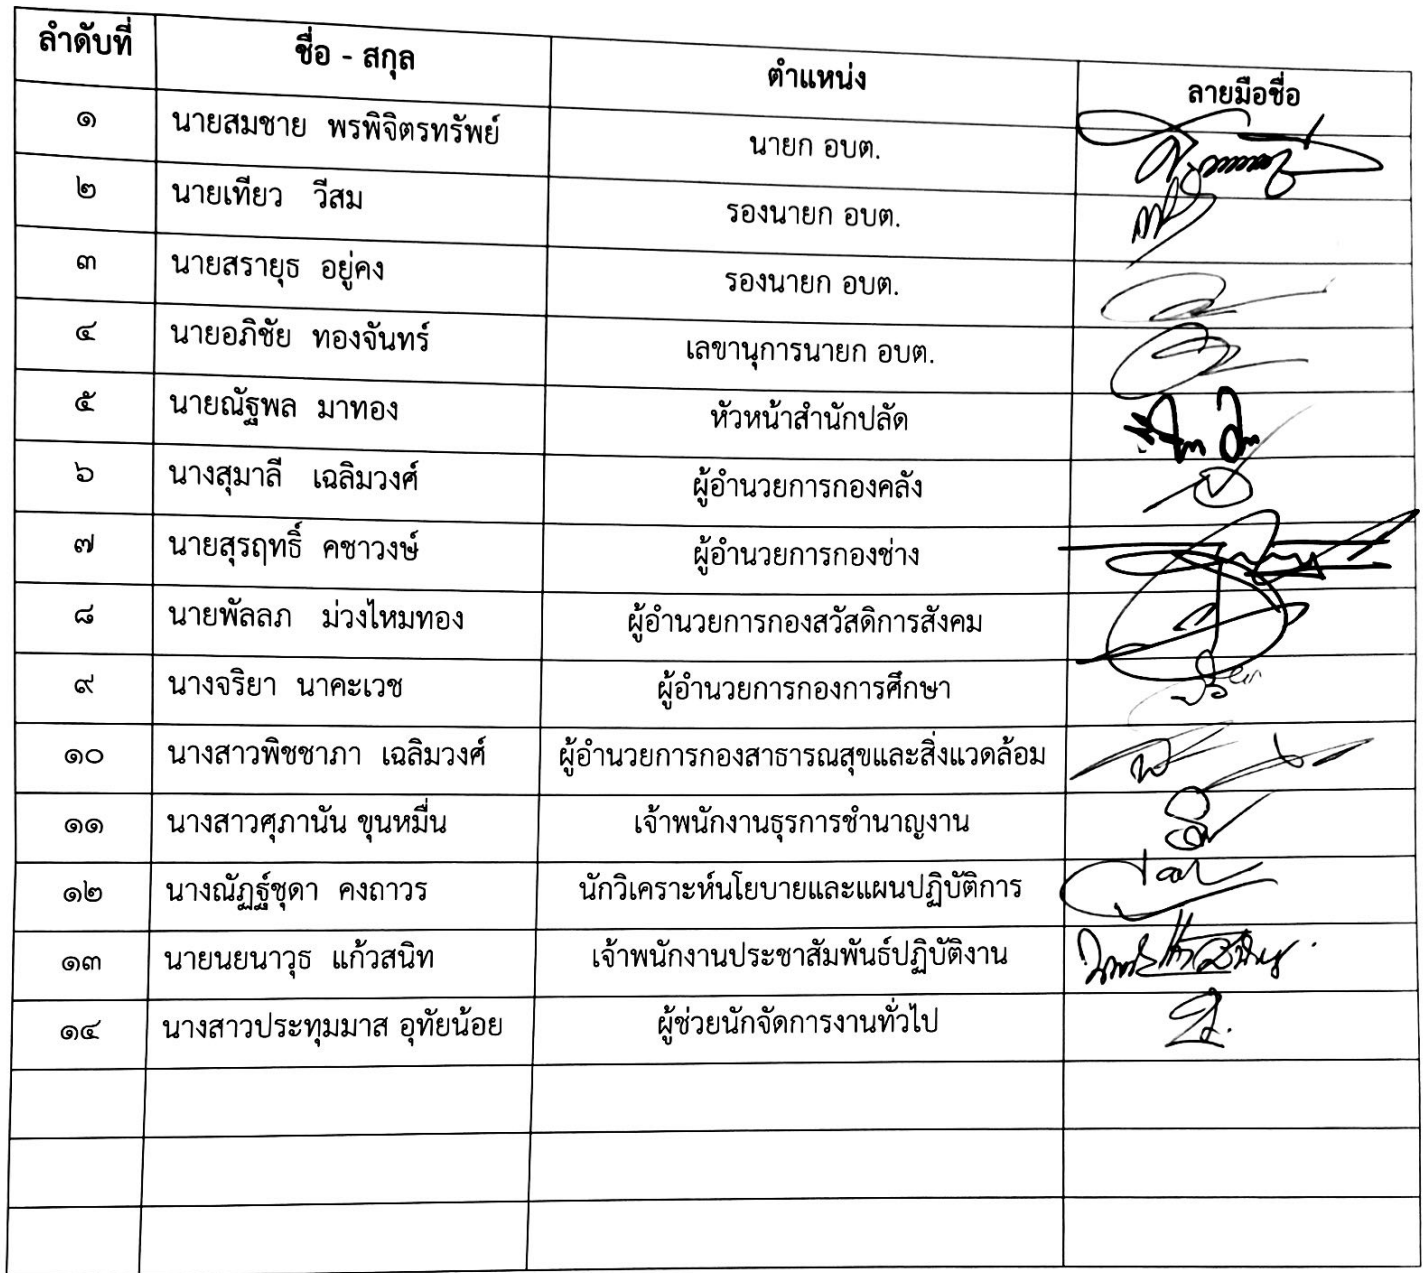 ลำดับที่ ชื่อ - สกุล ตำแหน่ง ลายมือชื่อ
๑ นายสมชาย พรพิจิตรทรัพย์ นายก อบต.
๒ นายเทียว วีสม รองนายก อบต.
๓ นายสรายุธ อยู่คง รองนายก อบต.
๔ นายอภิชัย ทองจันทร์ เลขานุการนายก อบต.
๕ นายณัฐพล มาทอง หัวหน้าสำนักปลัด
๖ นางสุมาลี เฉลิมวงศ์ ผู้อำนวยการกองคลัง
๗ นายสุรฤทธิ์ คชาวงษ์ ผู้อำนวยการกองช่าง
๘ นายพัลลภ ม่วงไหมทอง ผู้อำนวยการกองสวัสดิการสังคม
๙ นางจริยา นาคะเวช ผู้อำนวยการกองการศึกษา
๑๐ นางสาวพิชชาภา เฉลิมวงศ์ ผู้อำนวยการกองสาธารณสุขและสิ่งแวดล้อม
๑๑ นางสาวศุภานัน ขุนหมื่น เจ้าพนักงานธุรการชำนาญงาน
๑๒ นางณัฏฐ์ชุดา คงถาวร นักวิเคราะห์นโยบายและแผนปฏิบัติการ
๑๓ นายนยนาวุธ แก้วสนิท เจ้าพนักงานประชาสัมพันธ์ปฏิบัติงาน
๑๔ นางสาวประทุมมาส อุทัยน้อย ผู้ช่วยนักจัดการงานทั่วไป